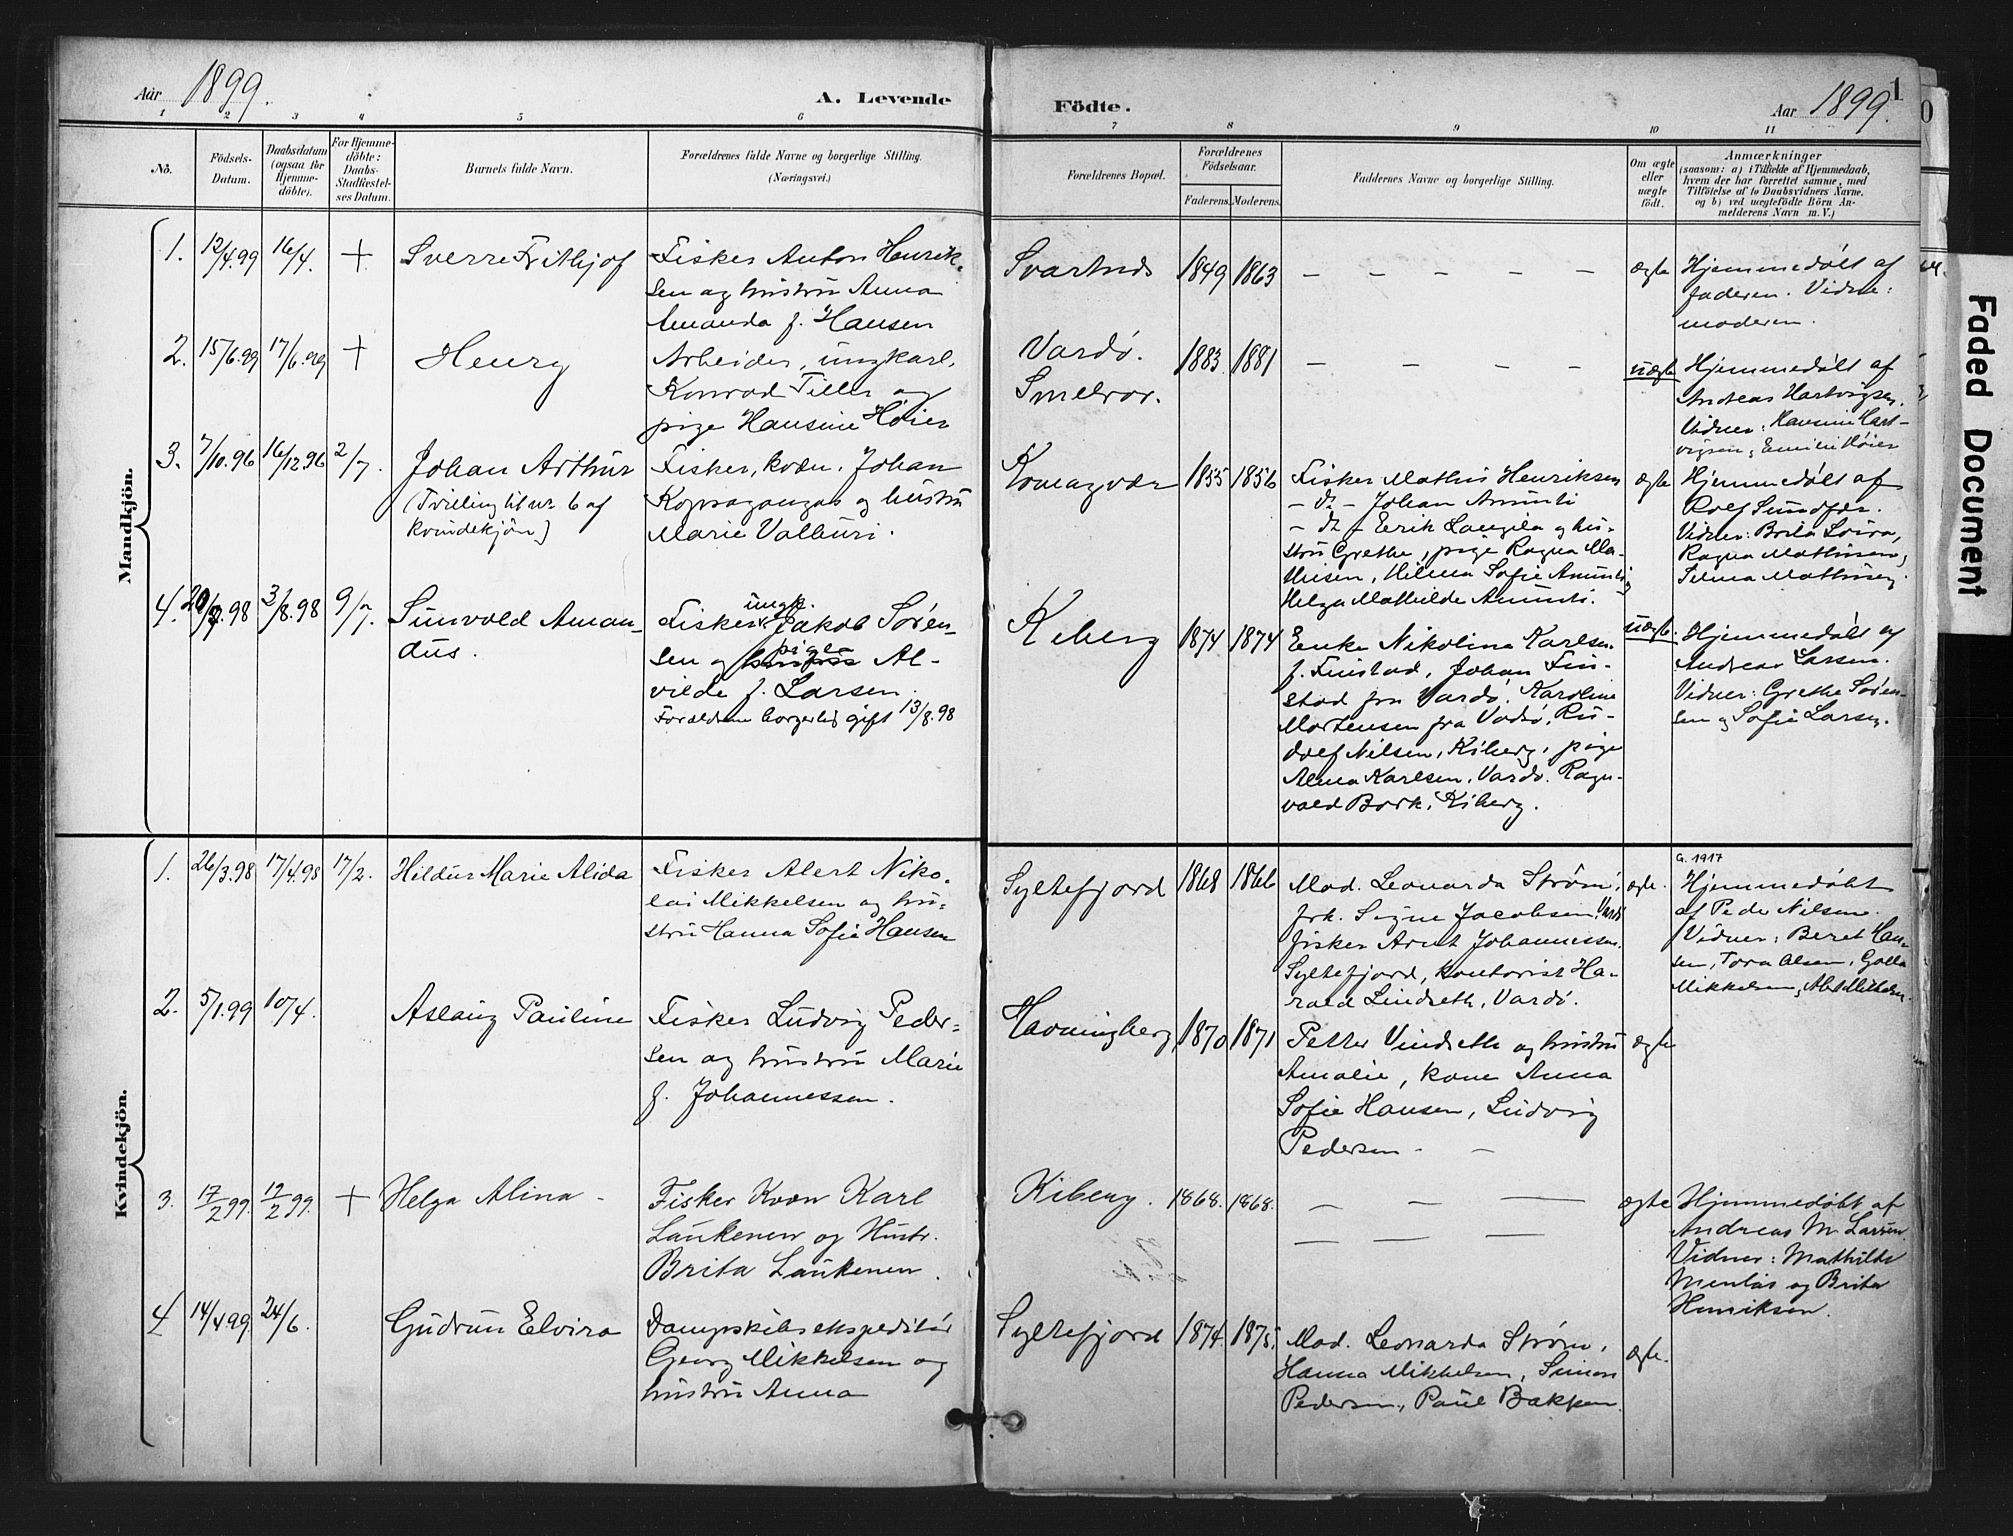 Aar 1899.
A. Levende
Födte.
Aar 1899.
1
1 2 3 4 5 6
7 8 9 10 11
No.
Födsels-
Datum.
Daabsdatum
(ogsaa for
Hjemme-
döbte).
For Hjemme-
döbte:
Daabs-
Stadfæstel-
ses Datum.
Barnets fulde Navn.
Forældrenes fulde Navne og borgerlige Stilling.
(Næringsvei.)
Forældrenes Bopæl.
Forældrenes
Födselsaar.
Faderens. Moderens.
Faddernes Navne og borgerlige Stilling.
Om ægte
eller
uægte
födt.
Anmærkninger
(saasom: a) i Tilfælde af Hjemmedaab,
hvem der har forrettet samme, med
Tilföielse af to Daabsvidners Navne,
og b) ved uægtefödte Börn An-
melderens Navn m. V.)
Mandkjön.
1. 12/4.99 16/4. + Sverre Frithjof
Fisker Anton Henrik-
sen og hustru Anna
Amanda f. Hansen
Svartnes 1849 1863
ægte
Hjemmedøbt af
faderen. Vidne:
moderen.
2. 15/6.99 17/6.99 + Henry
Arbeider, ungkarl,
Konrad Tiller og
pige Hansine Høier
Vardø.
Smelror.
1883 1881
uægte
Hjemmedøbt af
Andreas Hartvigsen.
Vidner: Hansine Hart-
vigsen, Emilie Høier
3. 7/10.96 16/12.96 2/7. Johan Arthur
(Tvilling til nr 6 af
kvindekjøn)
Fisker, kvæn, Johan
og hustru
Marie Valburi.
Komagvær 1855 1856
Fisker Mathis Henriksen
- do - Johan Anunti
- do - Erik Langila og hu-
stru Grethe, pige Ragna Ma-
thisen, Hilma Sofie Anunti,
Helga Mathilde Anunti.
ægte
Hjemmedøbt af
Rolf Sundfær.
Vidner: Brita
Ragna Mathisen,
Selma Mathisen.
4. 20/7.98 3/8.98 9/7. Sunvald Aman-
dus.
Fisker, ungk. Jakob Søren-
sen og pige Al-
vilde f. Larsen.
Forældrene borgerlig gift 13/8.98
Kiberg 1874 1874
Enke Nikolina Karlsen
f. Finstad, Johan Fin-
stad fra Vardø, Karoline
Mortensen fra Vadsø, Ru-
dolf Nilsen, Kiberg, pige
Alma Karlsen, Vardø. Ragn-
vald Bork, Kiberg.
uægte.
Hjemmedøbt af
Andreas Larsen.
Vidner: Grethe Søren-
sen og Sofie Larsen.
Kvindekjön.
1. 26/3.98 17/4.98 17/2. Hildur Marie Alida
Fisker Albert Niko-
lai Mikkelsen og hu-
stru Hanna Sofie Hansen
Syltefjord 1868 1866
Mad. Leonarda Strøm,
frk. Signe Jacobsen, Vardø
fisker Arnt Johannessen
Syltefjord, kontorist Ha-
rald Lindseth, Vardø.
ægte.
G. 1917
Hjemmedøbt
af Peder Nilsen.
Vidner: Beret Han-
sen, Tora Olsen,
Mikkelsen,
2. 5/1.99 10/4. Aslaug Pauline
Fisker Ludvig Peder-
sen og hustru Marie
f. Johannessen.
Havningberg 1870 1871
Petter Vindseth og hustru
Amalie, kone Anna
Sofie Hansen, Ludvig
Pedersen
ægte
3. 17/2 99. 19/2 99. + Helga Alina
Fisker Kvæn Karl
Laukenen og Hustr.
Brita Laukenen.
Kiberg. 1868. 1868.
ægte
Hjemmedøbt af
Andreas M. Larsen
Vidner: Mathilde
og Brita
Henriksen.
4 14/4 99 24/6. Gudrun Elvira
Dampskibsekspeditør
Georg Mikkelsen og
hustru Anna
Syltefjord 1874. 1875.
Mad. Leonarda Strøm,
Hanna Mikkelsen, Simon
Pedersen, Paul Bakken.
ægte.
Faded Document